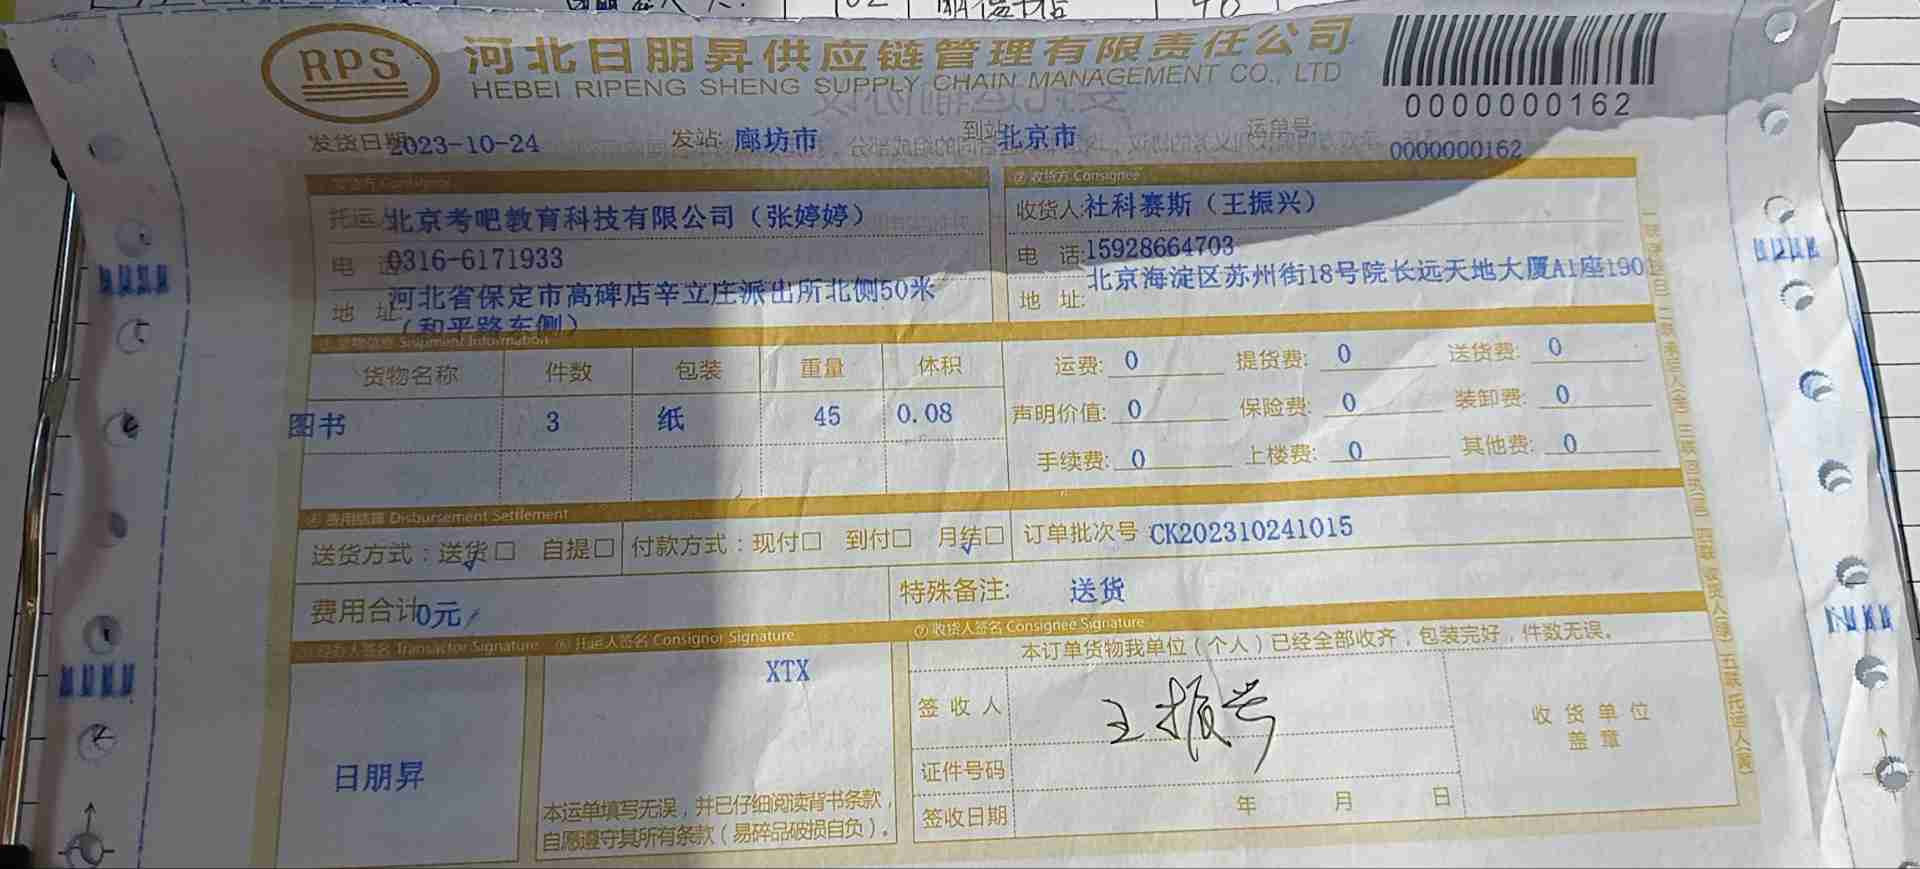 RPS
河北日朋昇供应链管理有限责任公司
HEBEI RIPENG SHENG SUPPLY CHAIN MANAGEMENT CO., LTD
0000000162
发货日期 2023-10-24 发站: 廊坊市 到站 北京市 运单号 0000000162
② 收货方 Consignee
托运人 北京考吧教育科技有限公司（张婷婷）
收货人: 社科赛斯（王振兴）
电 话 0316-6171933
电 话: 15928664703
地 址 河北省保定市高碑店辛立庄派出所北侧50米
（和平路东侧）
地 址: 北京海淀区苏州街18号院长远天地大厦A1座190
货物信息 Shipment Information
货物名称 件数 包装 重量 体积
图书 3 纸 45 0.08
运费: 0 提货费: 0 送货费: 0
声明价值: 0 保险费: 0 装卸费: 0
手续费: 0 上楼费: 0 其他费: 0
④ 费用结算 Disbursement Settlement
送货方式：送货☐ 自提☐ 付款方式：现付☐ 到付☐ 月结☐ 订单批次号 CK202310241015
费用合计 0元 特殊备注: 送货
经办人签名 Transactor Signature ⑥ 托运人签名 Consignor Signature ⑦ 收货人签名 Consignee Signature
日朋昇
XTX
本运单填写无误，并已仔细阅读背书条款，
自愿遵守其所有条款（易碎品破损自负）。
本订单货物我单位（个人）已经全部收齐，包装完好，件数无误。
签收人 王振兴
证件号码
签收日期 年 月 日
收货单位
盖章